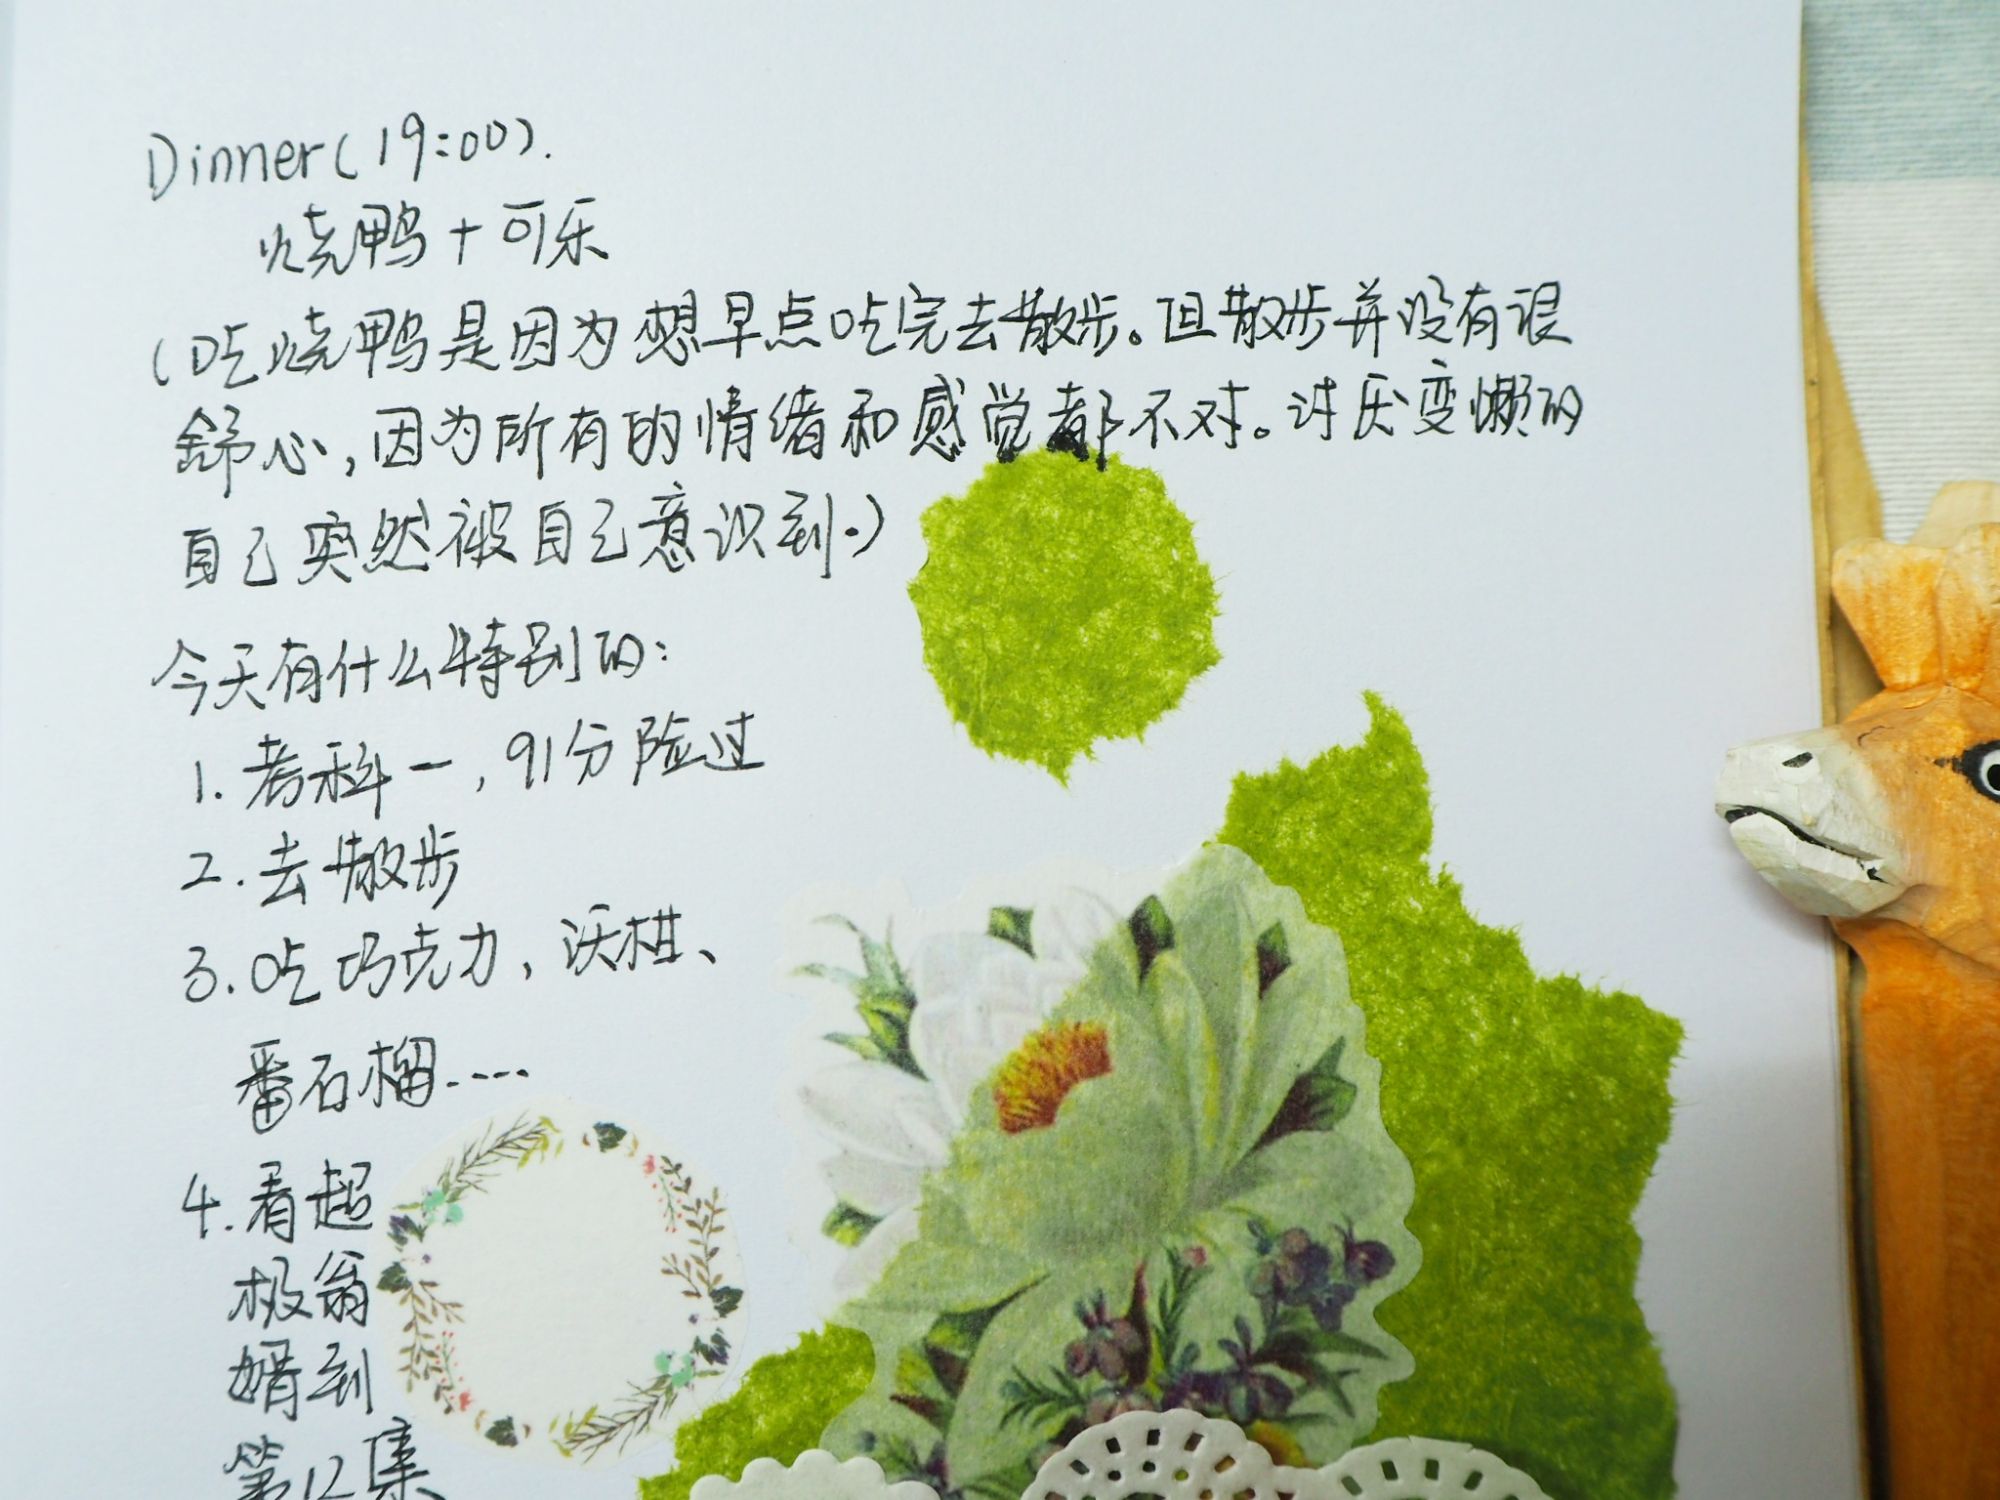 Dinner(19:00).
烧鸭+可乐
(吃烧鸭是因为想早点吃完去散步。但散步并没有很
舒心,因为所有的情绪和感觉都不对。讨厌变懒的
自己突然被自己意识到.)
今天有什么特别的:
1.考科一,91分险过
2.去散步
3.吃巧克力,沃柑、
番石榴....
4.看超
极翁
婿到
第12集